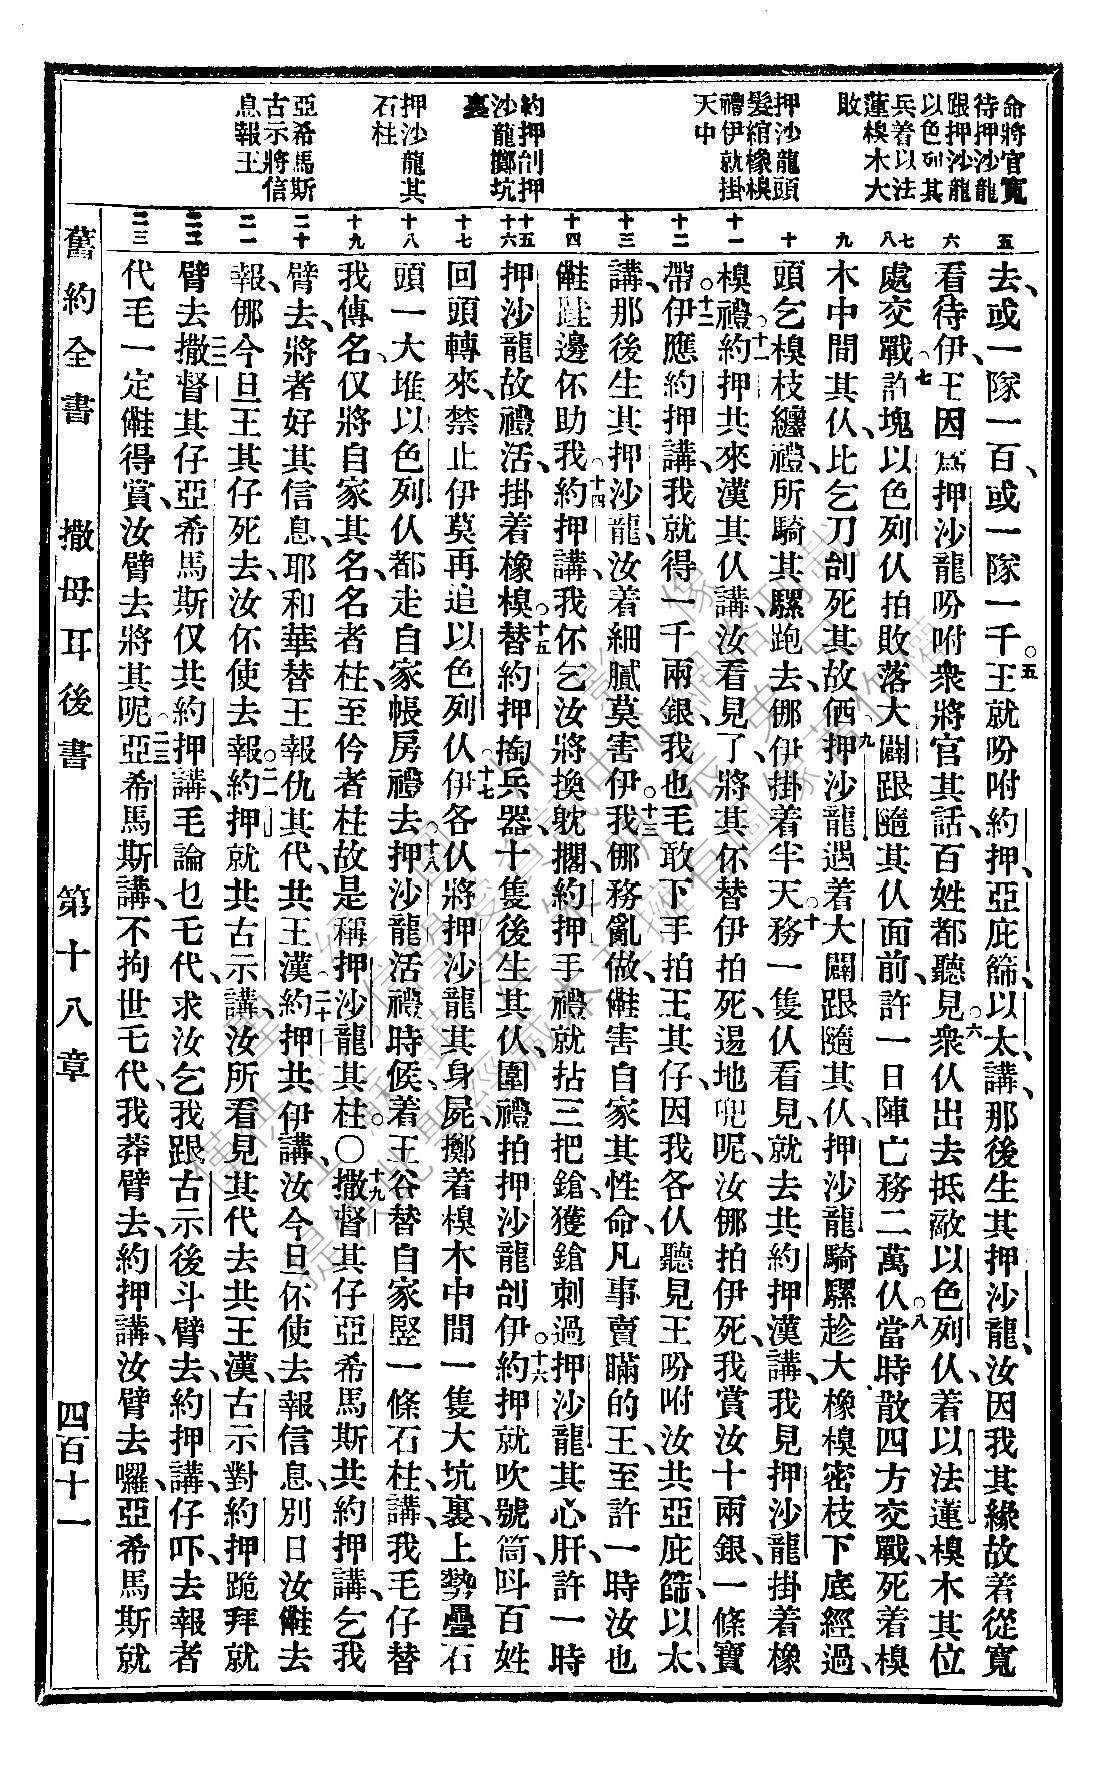 命將官寬
待押沙龍
跟押沙龍
以色列其
兵着以法
蓮樉木大
敗
押沙龍頭
髮綰橡樉
禮伊就掛
天中
約押刣押
沙龍擲坑
裏
押沙龍其
石柱
亞希馬斯
古示將信
息報王
五 六 七 八 九 十 十一 十二 十三 十四 十五 十六 十七 十八 十九 二十 二一 二二 二三
去、或一隊一百、或一隊一千。五王就吩咐約押、亞庇篩、以太、講、那後生其押沙龍、汝因我其緣故着從寬
看待伊、王因爲押沙龍吩咐衆將官其話、百姓都聽見。六衆仈出去抵敵以色列仈、着以法蓮樉木其位
處交戰、七許塊以色列仈拍敗落大闢跟隨其仈面前、許一日陣亡務二萬仈。八當時散四方交戰、死着樉
木中間其仈、比乞刀刣死其故価。九押沙龍遇着大闢跟隨其仈、押沙龍騎騾趁大橡樉密枝下底經過、
頭乞樉枝纏禮、所騎其騾跑去、㑚伊掛着半天。十務一隻仈看見、就去共約押漢講、我見押沙龍掛着橡
樉禮。十一約押共來漢其仈講、汝看見了、將其伓替伊拍死逿地兜呢、汝㑚拍伊死、我賞汝十兩銀、一條寶
帶。十二伊應約押講、我就得一千兩銀、我也毛敢下手拍王其仔、因我各仈聽見王吩咐汝共亞庇篩、以太、
講、那後生其押沙龍、汝着細膩莫害伊。十三我㑚務亂做、𣍐害自家其性命、凡事賣瞞的王、至許一時汝也
𣍐跬邊伓助我。十四約押講、我伓乞汝將換躭擱、約押手禮就拈三把鎗、獲鎗刺過押沙龍其心肝、許一時
押沙龍故禮活、掛着橡樉。十五替約押掏兵器、十隻後生其仈、圍禮拍押沙龍刣伊。十六約押就吹號筒、叫百姓
回頭轉來、禁止伊莫再追以色列仈。十七伊各仈將押沙龍其身屍、擲着樉木中間一隻大坑裏、上勢疊石
頭一大堆、以色列仈都走自家帳房禮去。十八押沙龍活禮時候、着王谷替自家竪一條石柱、講、我毛仔替
我傳名、仅將自家其名、名者柱、至伶者柱故是稱押沙龍其柱。〇十九撒督其仔亞希馬斯共約押講、乞我
臂去、將者好其信息、耶和華替王報仇其代、共王漢、二十約押共伊講、汝今旦伓使去報信息、別日汝𣍐去
報、㑚今旦王其仔死去、汝伓使去報。二一約押就共古示講、汝所看見其代去共王漢、古示對約押跪拜就
臂去。二二撒督其仔亞希馬斯仅共約押講、毛論乜毛代、求汝乞我跟古示後斗臂去、約押講、仔吓、去報者
代毛一定𣍐得賞、汝臂去將其呢、二三亞希馬斯講、不拘世毛代、我莽臂去、約押講、汝臂去囉、亞希馬斯就
舊約全書 撒母耳後書 第十八章 四百十一